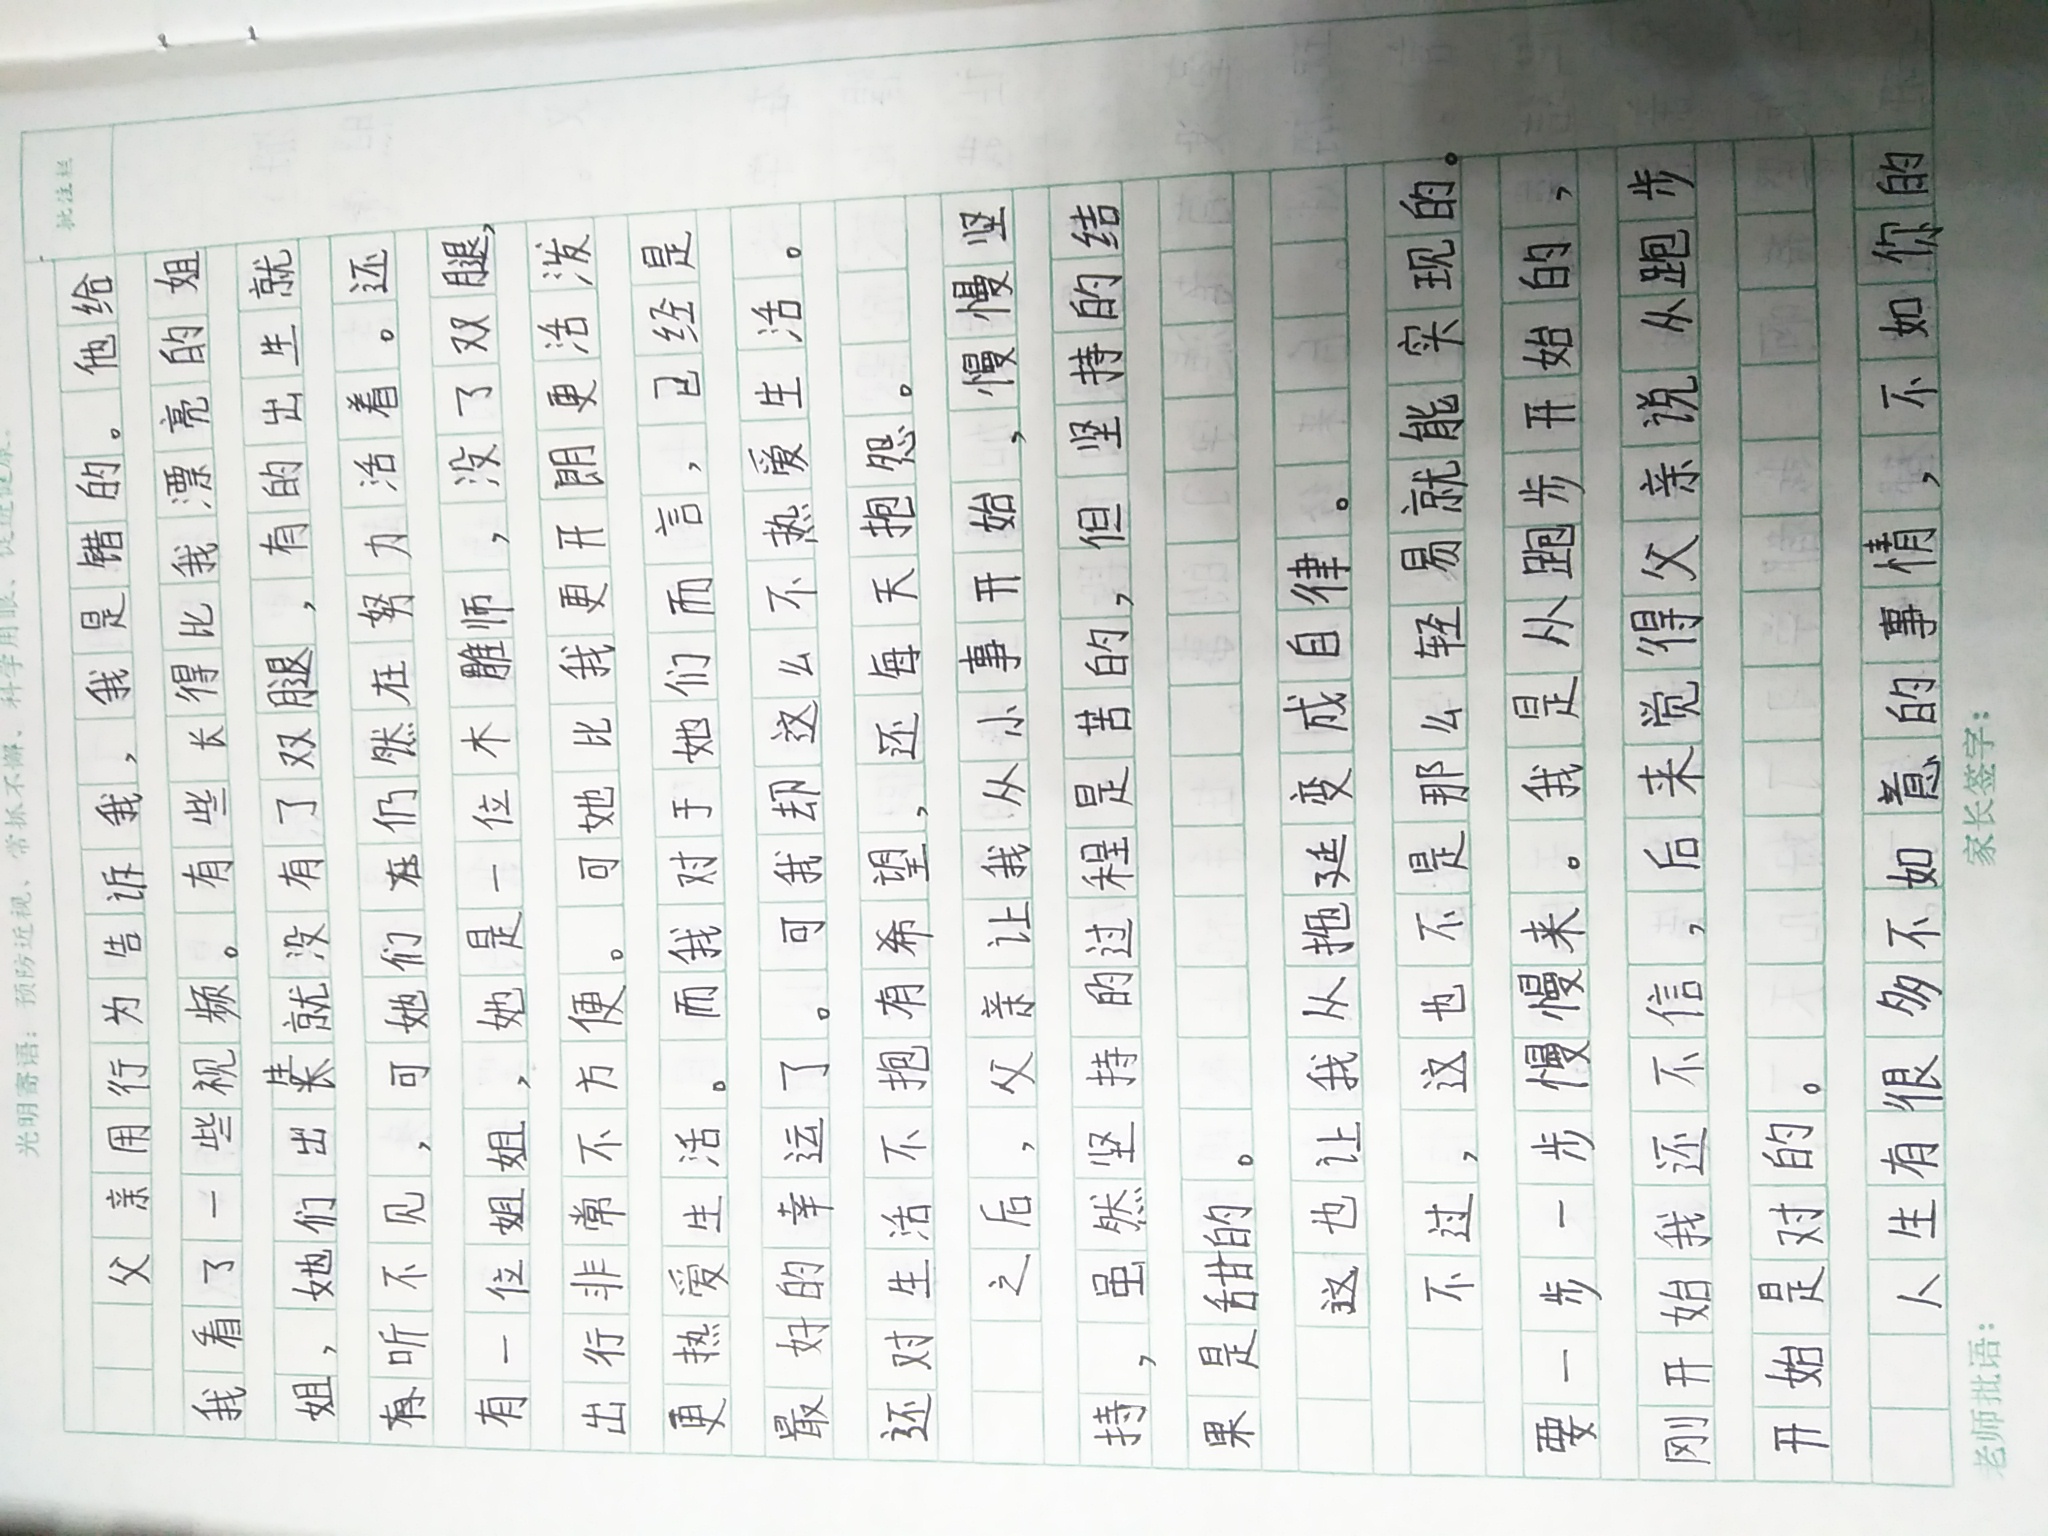 光明寄语：预防近视、常抓不懈、科学用眼、促进健康。
批注栏
父亲用行为告诉我，我是错的。他给
我看了一些视频。有些长得比我漂亮的姐
姐，她们出来就没有了双腿，有的出生就
有听不见，可她们在仍然在努力活着。还
有一位姐姐，她是一位木雕师，没了双腿，
出行非常不方便。可她比我更开朗更活泼
更热爱生活。而我对于她们而言，已经是
最好的幸运了。可我却这么不热爱生活。
还对生活不抱有希望，还每天抱怨。
之后，父亲让我从小事开始，慢慢坚
持，虽然坚持的过程是苦的，但坚持的结
果是甜的。
这也让我从拖延变成自律。
不过，这也不是那么轻易就能实现的。
要一步一步慢慢来。我是从跑步开始的，
刚开始我还不信，后来觉得父亲说从跑步
开始是对的。
人生有很多不如意的事情，不如你的
老师批语：
家长签字：